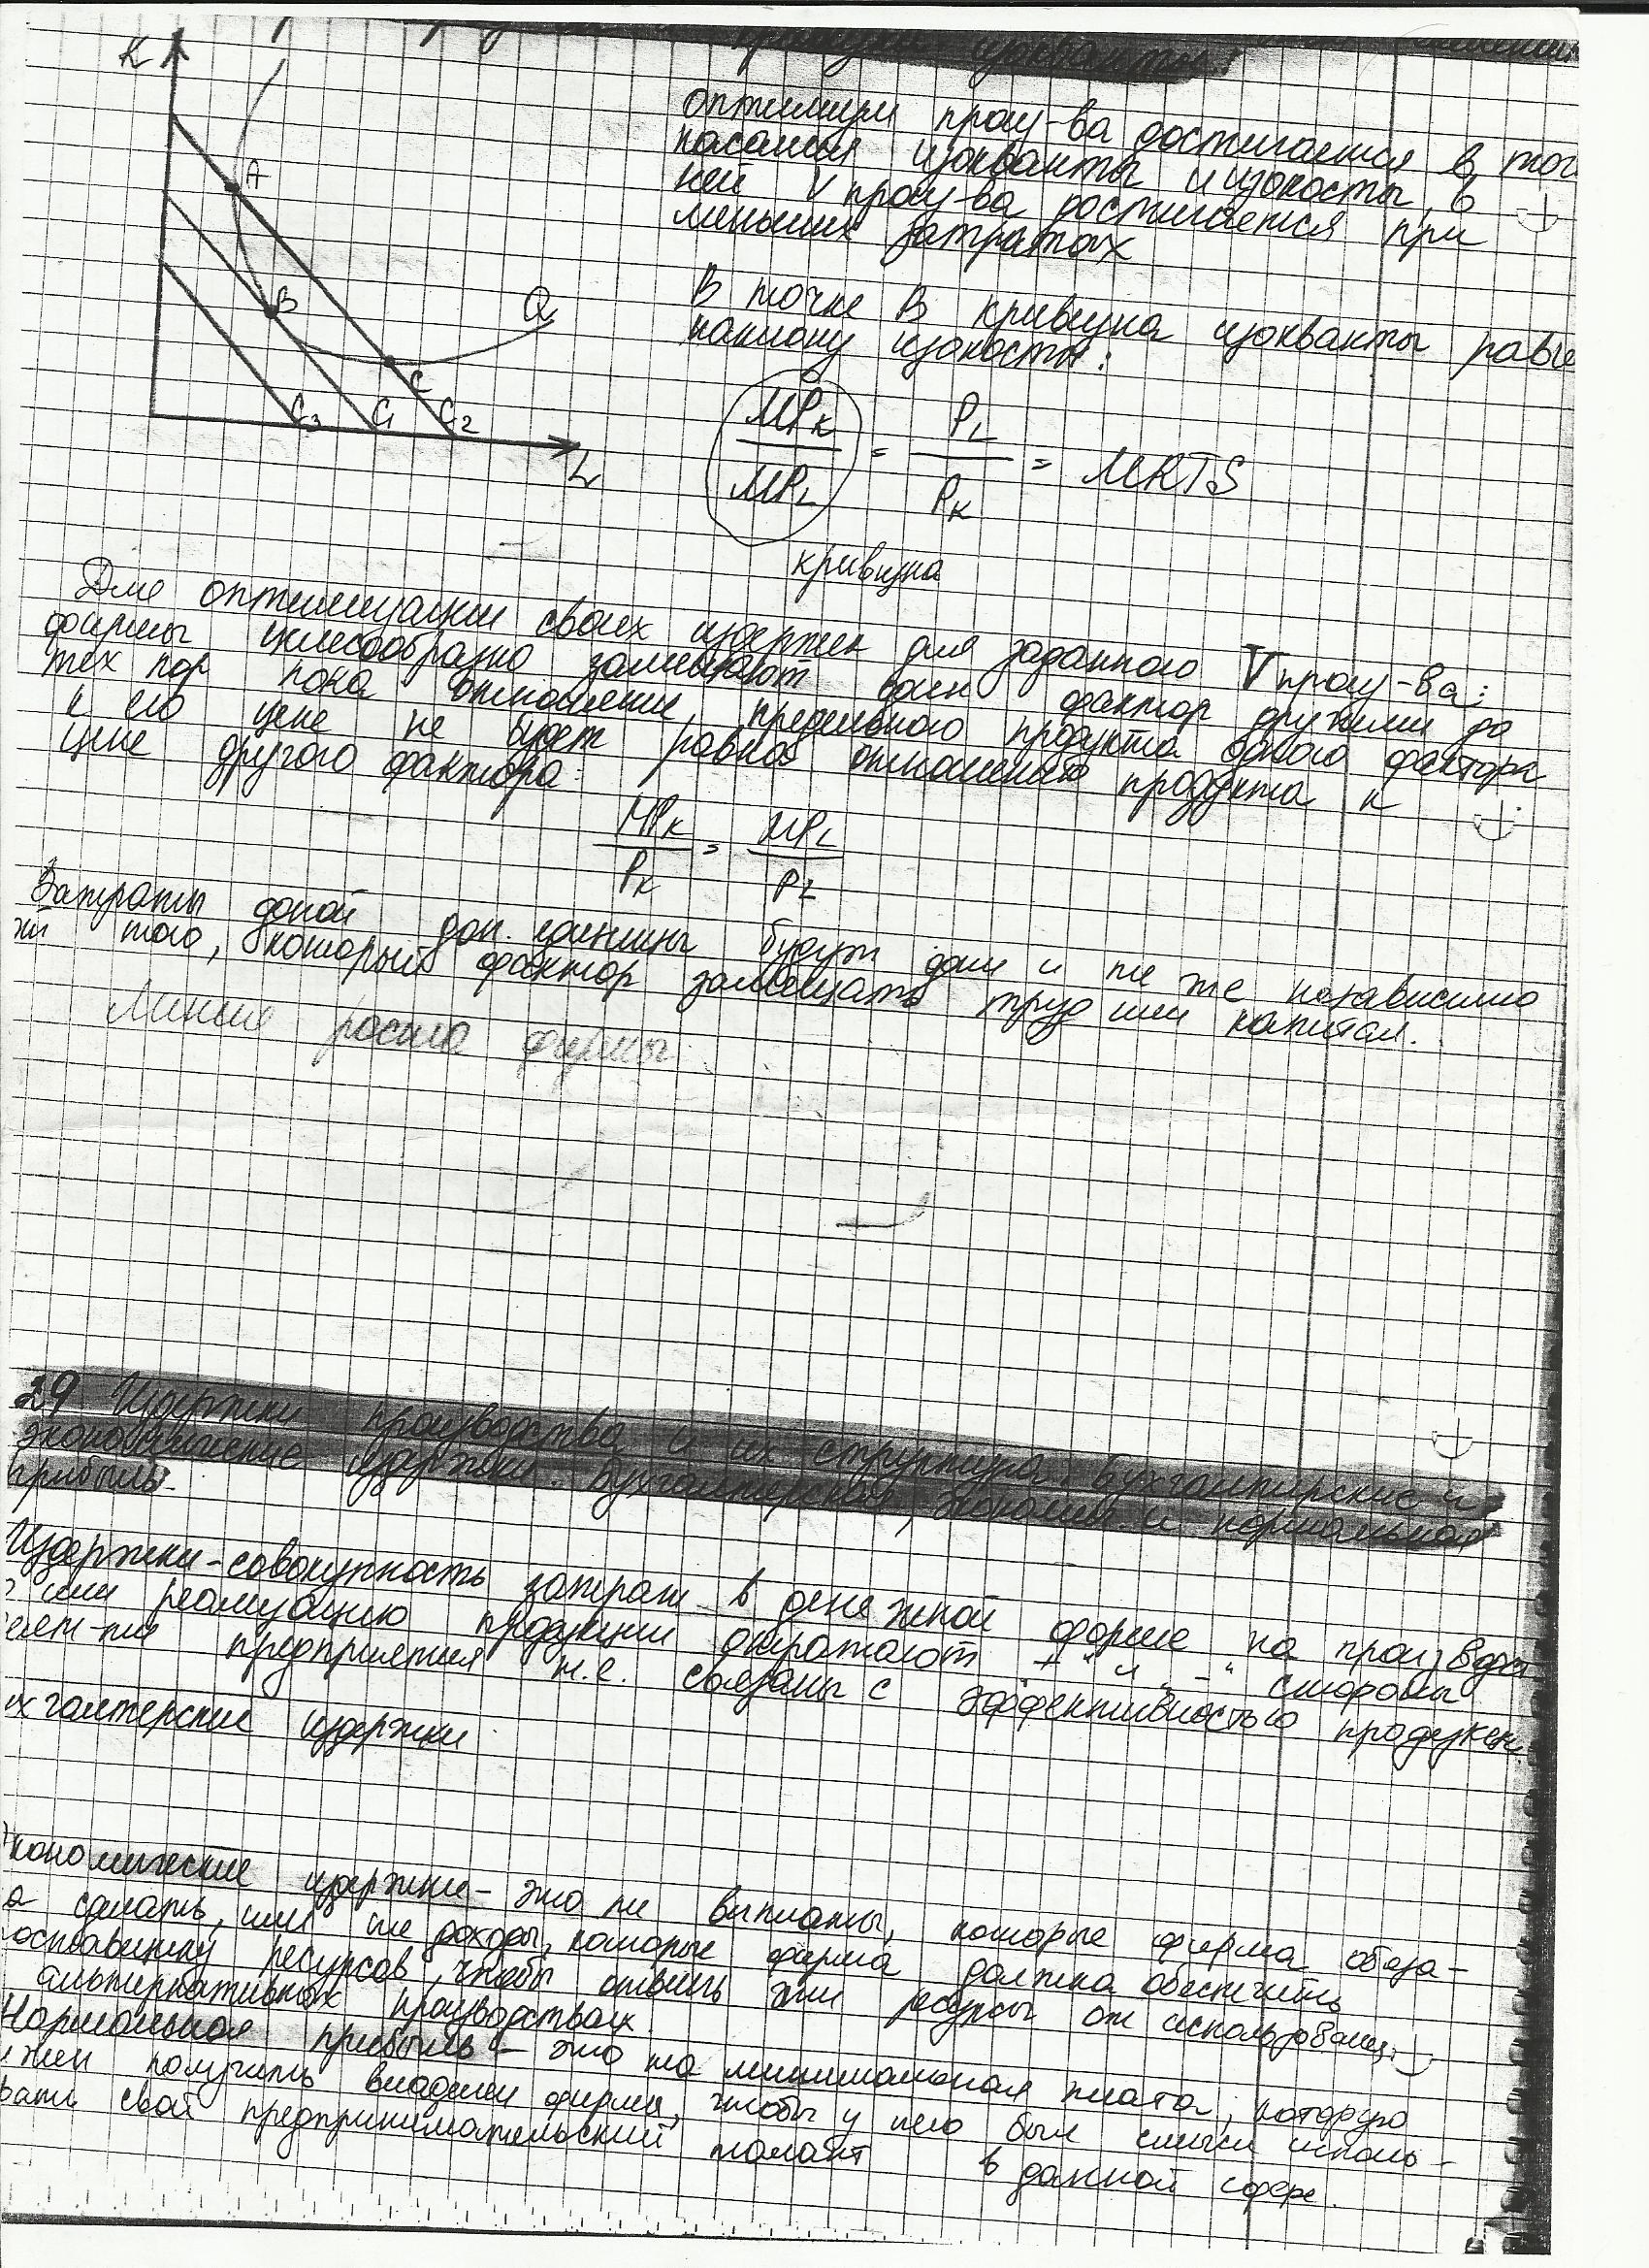 изокванты:
K
A
B
C
Q
C3 C1 C2
L
оптимум прои-ва достигается в точ
касания изокванты и изокосты, в
ней V прои-ва достигается при
меньших затратах
В точке В кривизна изокванты равна
наклону изокосты:
MPK / MPL = PL / PK = MRTS
кривизна
Для оптимизации своих издержек для заданного V прои-ва:
фирмы целесообразно замещают один фактор другими до
тех пор пока отношение предельного продукта одного фактора
к его цене не будет равно отношению продукта к
цене другого фактора:
MPK / PK = MPL / PL
Затраты доп. единицы будут одни и те же независимо
того, который фактор замещать труд или капитал.
Линия роста фирмы
29 Издержки производства и их структура. Бухгалтерские и
экономические издержки. Бухгалтерская, эконом. и нормальная
прибыль.
Издержки-совокупность затрат в денежной форме на произ-водст
или реализацию продукции отражают "+" и "-" стороны
предприятия т.е. связаны с эффективностью
ухгалтерские издержки
кономические издержки- это те выплаты, которые фирма обяза-
а сделать, или те доходы, которые фирма должна обеспечить
оставщику ресурсов, чтобы отвлечь эти ресурсы от использован.
альтернативных производствах.
Нормальная прибыль - это та минимальная плата, которую
жен получить владелец фирмы, чтобы у него был смысл исполь-
вать свой предпринимательский талант в данной сфере.